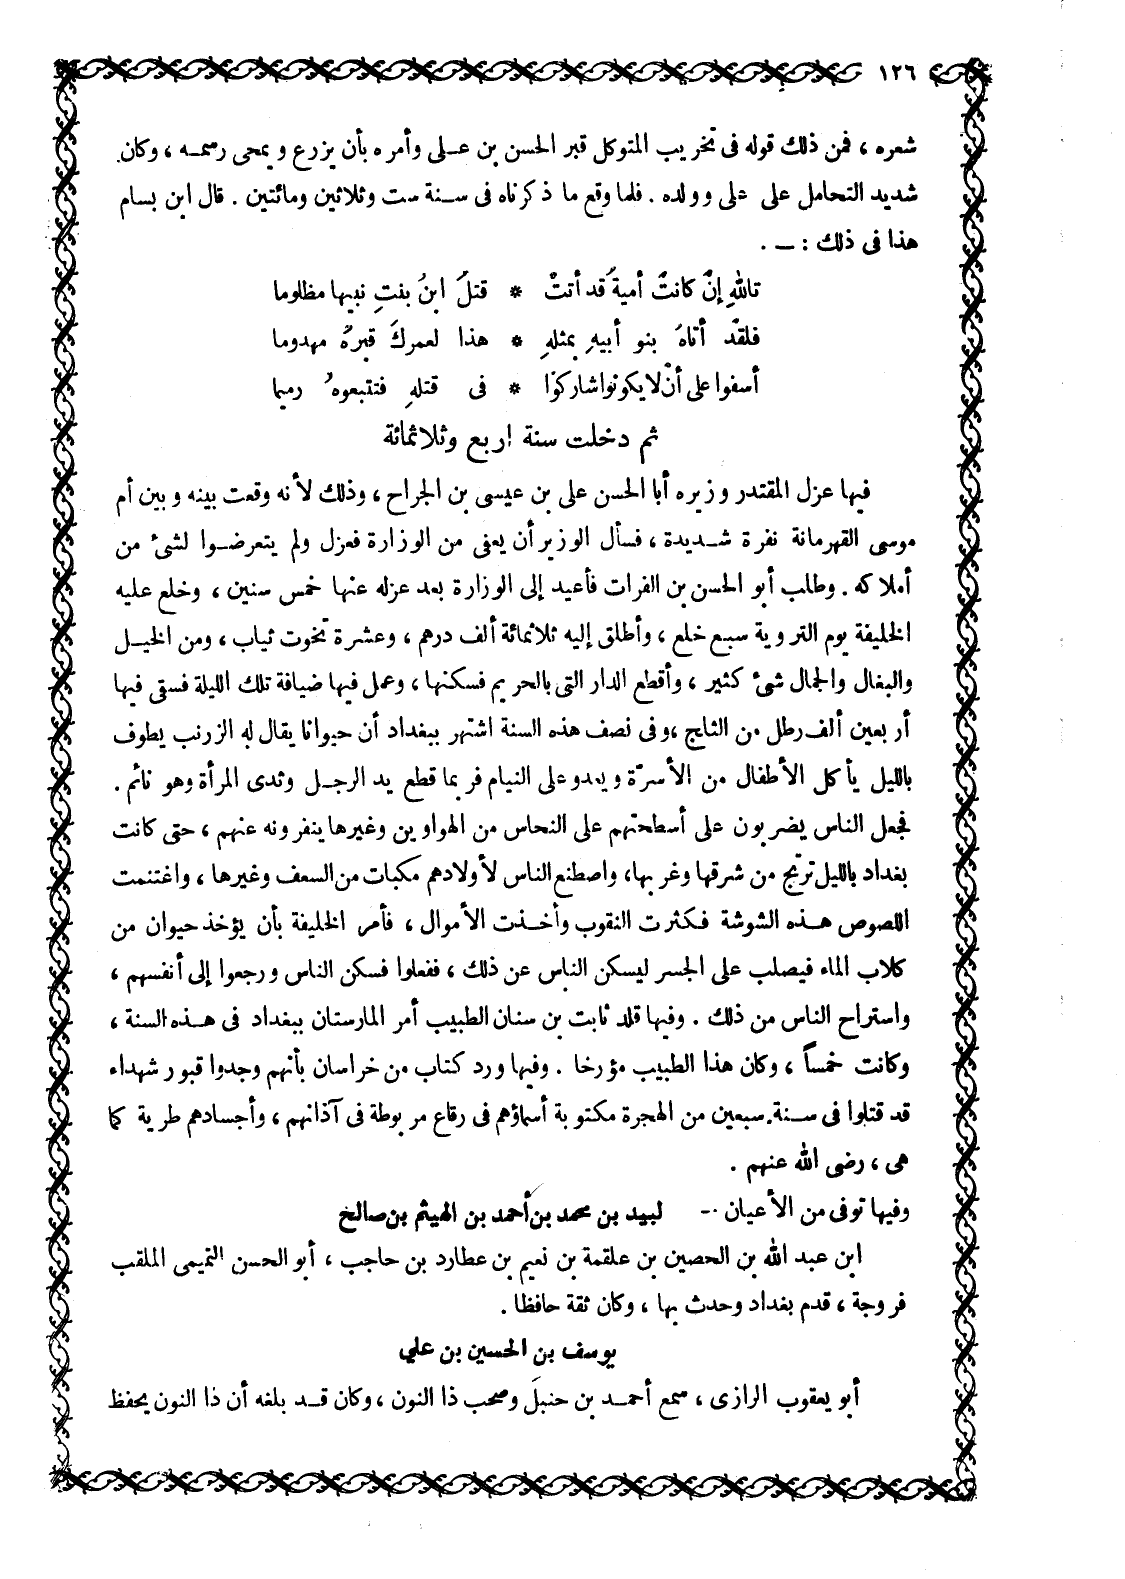 ١٢٦
شعره ، فمن ذلك قوله فى تخريب المتوكل قبر الحسن بن على وأمره بأن يزرع ويمحى رسمه ، وكان
شديد التحامل على على وولده . فلما وقع ما ذكرناه فى سنة ست وثلاثين ومائتين . قال ابن بسام
هذا فى ذلك : ــ .
تاللهِ إنْ كانتْ أميةُ قد أتتْ * قتلَ ابنُ بنتِ نبيها مظلوما
فلقدْ أتاهُ بنو أبيهِ بمثلهِ * هذا لعمركَ قبرهُ مهدوما
أسفوا على أنْ لا يكونوا شاركوا * فى قتلهِ فتتبعوهُ رميما
ثم دخلت سنة اربع وثلاثمائة
فيها عزل المقتدر وزيره أبا الحسن على بن عيسى بن الجراح ، وذلك لأنه وقعت بينه وبين أم
موسى القهرمانة نفرة شديدة ، فسأل الوزير أن يعفى من الوزارة فعزل ولم يتعرضوا لشئ من
أملاكه . وطلب أبو الحسن بن الفرات فأعيد إلى الوزارة بعد عزله عنها خمس سنين ، وخلع عليه
الخليفة يوم التروية سبع خلع ، وأطلق إليه ثلاثمائة ألف درهم ، وعشرة تخوت ثياب ، ومن الخيل
والبغال والجمال شئ كثير ، وأقطع الدار التى بالحريم فسكنها ، وعمل فيها ضيافة تلك الليلة فسقى فيها
أربعين ألف رطل من الثلج ، وفى نصف هذه السنة اشتهر ببغداد أن حيوانا يقال له الزرنب يطوف
بالليل يأكل الأطفال من الأسرّة ويعدو على النيام فربما قطع يد الرجل وثدى المرأة وهو نائم .
فجعل الناس يضربون على أسطحتهم على النحاس من الهواوين وغيرها ينفرونه عنهم ، حتى كانت
بغداد بالليل ترتج من شرقها وغربها ، واصطنع الناس لأولادهم مكبات من السعف وغيرها ، واغتنمت
اللصوص هذه الشوشة فكثرت النقوب وأخذت الأموال ، فأمر الخليفة بأن يؤخذ حيوان من
كلاب الماء فيصلب على الجسر ليسكن الناس عن ذلك ، ففعلوا فسكن الناس ورجعوا إلى أنفسهم ،
واستراح الناس من ذلك . وفيها قلد ثابت بن سنان الطبيب أمر المارستان ببغداد فى هذه السنة ،
وكانت خمساً ، وكان هذا الطبيب مؤرخا . وفيها ورد كتاب من خراسان بأنهم وجدوا قبور شهداء
قد قتلوا فى سنة سبعين من الهجرة مكتوبة أسماؤهم فى رقاع مربوطة فى آذانهم ، وأجسادهم طرية كما
هى ، رضى الله عنهم .
وفيها توفى من الأعيان .- لبيد بن محمد بن أحمد بن الهيثم بن صالح
ابن عبد الله بن الحصين بن علقمة بن نعيم بن عطارد بن حاجب ، أبو الحسن التميمى الملقب
فروجة ، قدم بغداد وحدث بها ، وكان ثقة حافظا .
يوسف بن الحسين بن علي
أبو يعقوب الرازى ، سمع أحمد بن حنبل وصحب ذا النون ، وكان قد بلغه أن ذا النون يحفظ